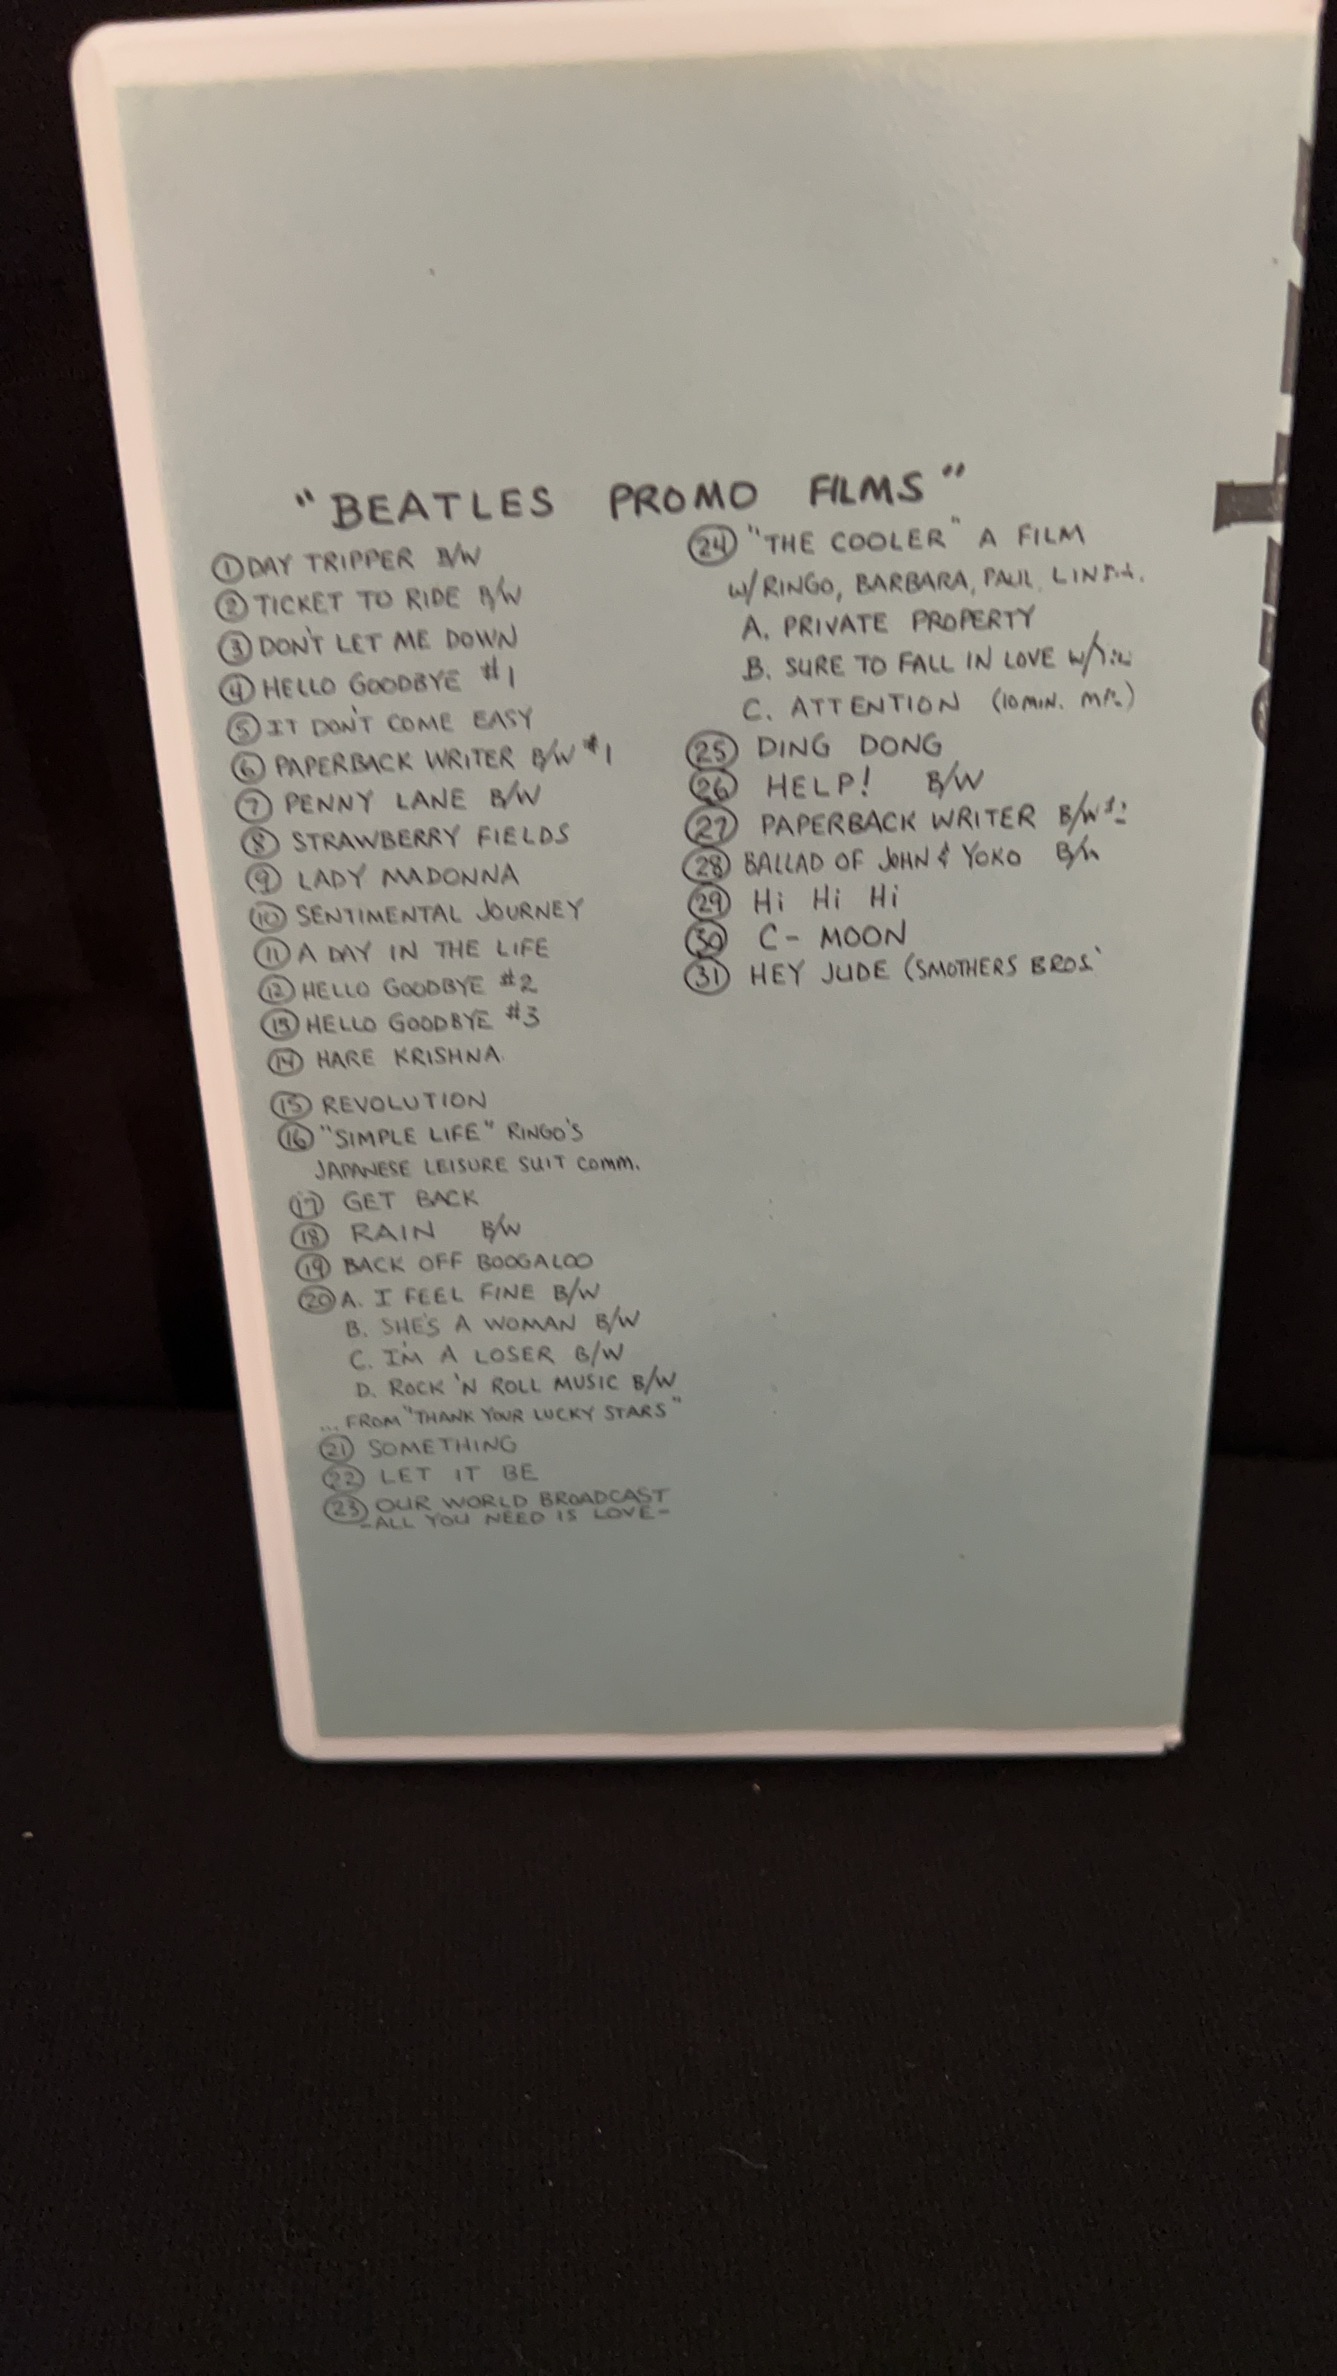 "BEATLES PROMO FILMS"
① DAY TRIPPER B/W
② TICKET TO RIDE B/W
③ DON'T LET ME DOWN
④ HELLO GOODBYE #1
⑤ IT DON'T COME EASY
⑥ PAPERBACK WRITER B/W #1
⑦ PENNY LANE B/W
⑧ STRAWBERRY FIELDS
⑨ LADY MADONNA
⑩ SENTIMENTAL JOURNEY
⑪ A DAY IN THE LIFE
⑫ HELLO GOODBYE #2
⑬ HELLO GOODBYE #3
⑭ HARE KRISHNA
⑮ REVOLUTION
⑯ "SIMPLE LIFE" RINGO'S
JAPANESE LEISURE SUIT COMM.
⑰ GET BACK
⑱ RAIN B/W
⑲ BACK OFF BOOGALOO
⑳ A. I FEEL FINE B/W
B. SHE'S A WOMAN B/W
C. I'M A LOSER B/W
D. ROCK 'N ROLL MUSIC B/W
... FROM "THANK YOUR LUCKY STARS"
㉑ SOMETHING
㉒ LET IT BE
㉓ OUR WORLD BROADCAST
-ALL YOU NEED IS LOVE-
㉔ "THE COOLER" A FILM
W/RINGO, BARBARA, PAUL,
A. PRIVATE PROPERTY
B. SURE TO FALL IN LOVE
C. ATTENTION (10 MIN.
㉕ DING DONG
㉖ HELP! B/W
㉗ PAPERBACK WRITER B/W
㉘ BALLAD OF JOHN & YOKO B/W
㉙ Hi Hi Hi
㉚ C-MOON
㉛ HEY JUDE (SMOTHERS BROS